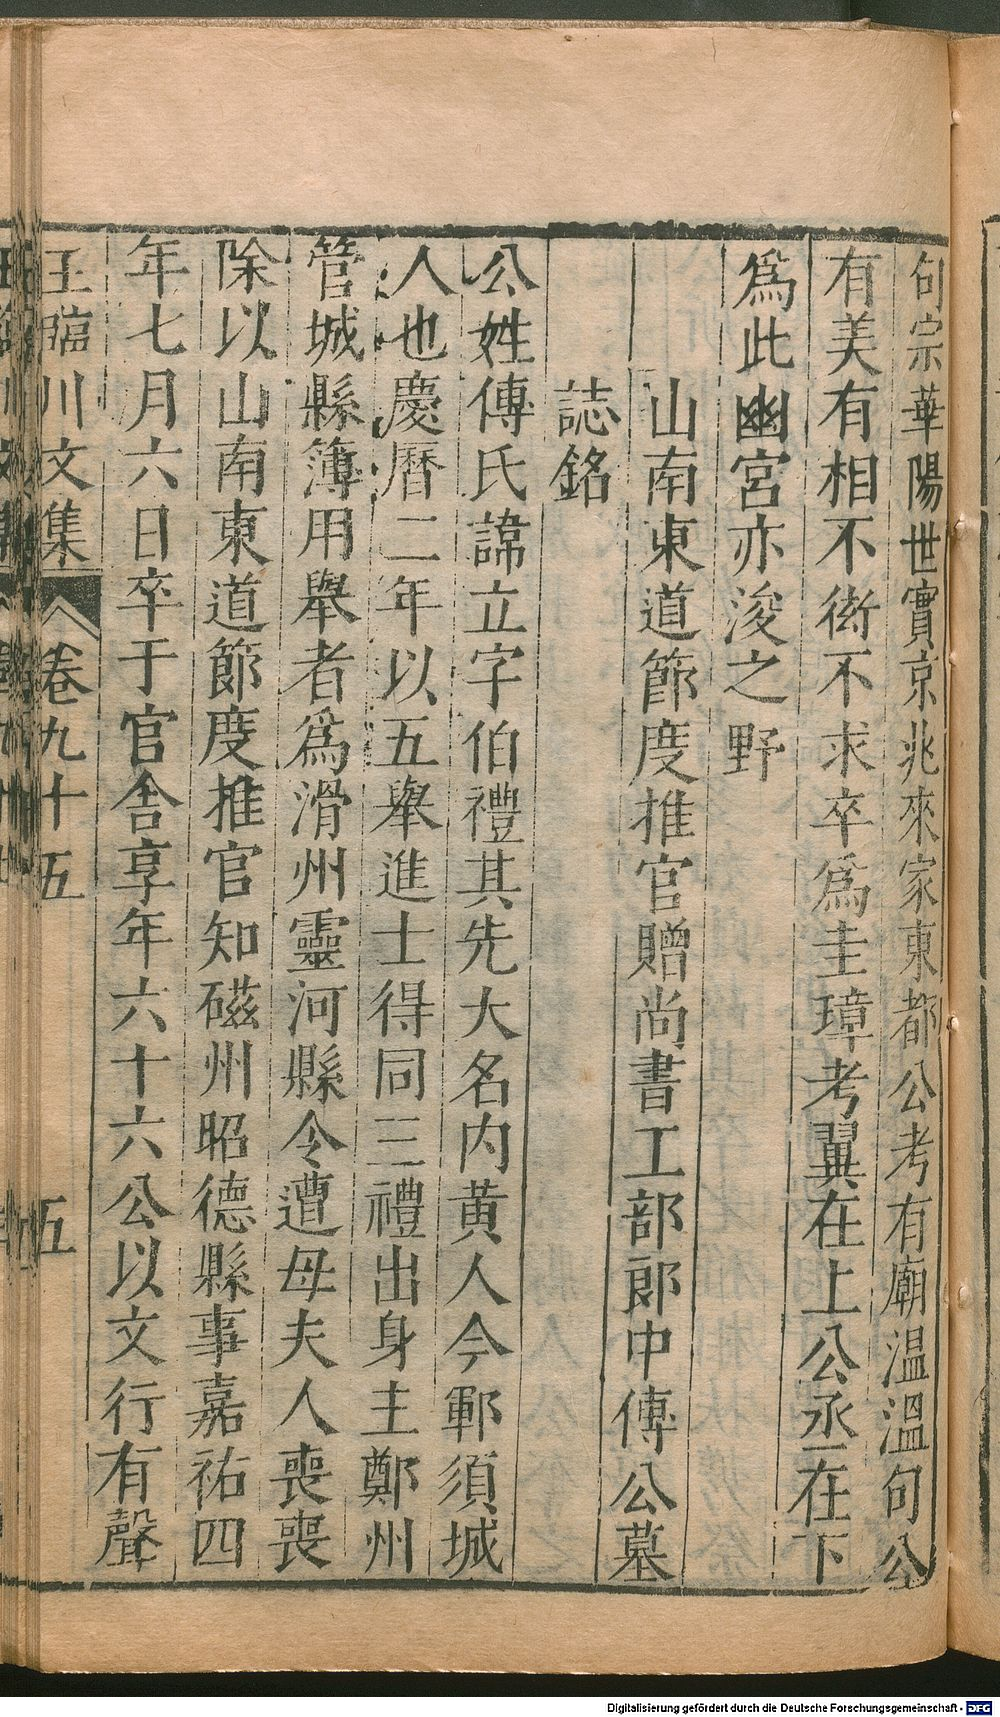 句宗華陽世實京兆來家東都公考有廟溫溫句公
有美有相不衒不求卒爲圭璋考翼在上公丞在下
爲此幽宮亦浚之野
山南東道節度推官贈尚書工部郎中傅公墓
誌銘
公姓傅氏諱立字伯禮其先大名內黃人今鄆須城
人也慶曆二年以五舉進士得同三禮出身主鄭州
管城縣簿用舉者爲滑州靈河縣令遭母夫人喪喪
除以山南東道節度推官知磁州昭德縣事嘉祐四
年七月六日卒于官舍享年六十六公以文行有聲
王臨川文集 卷九十五 五
Digitalisierung gefördert durch die Deutsche Forschungsgemeinschaft - DFG